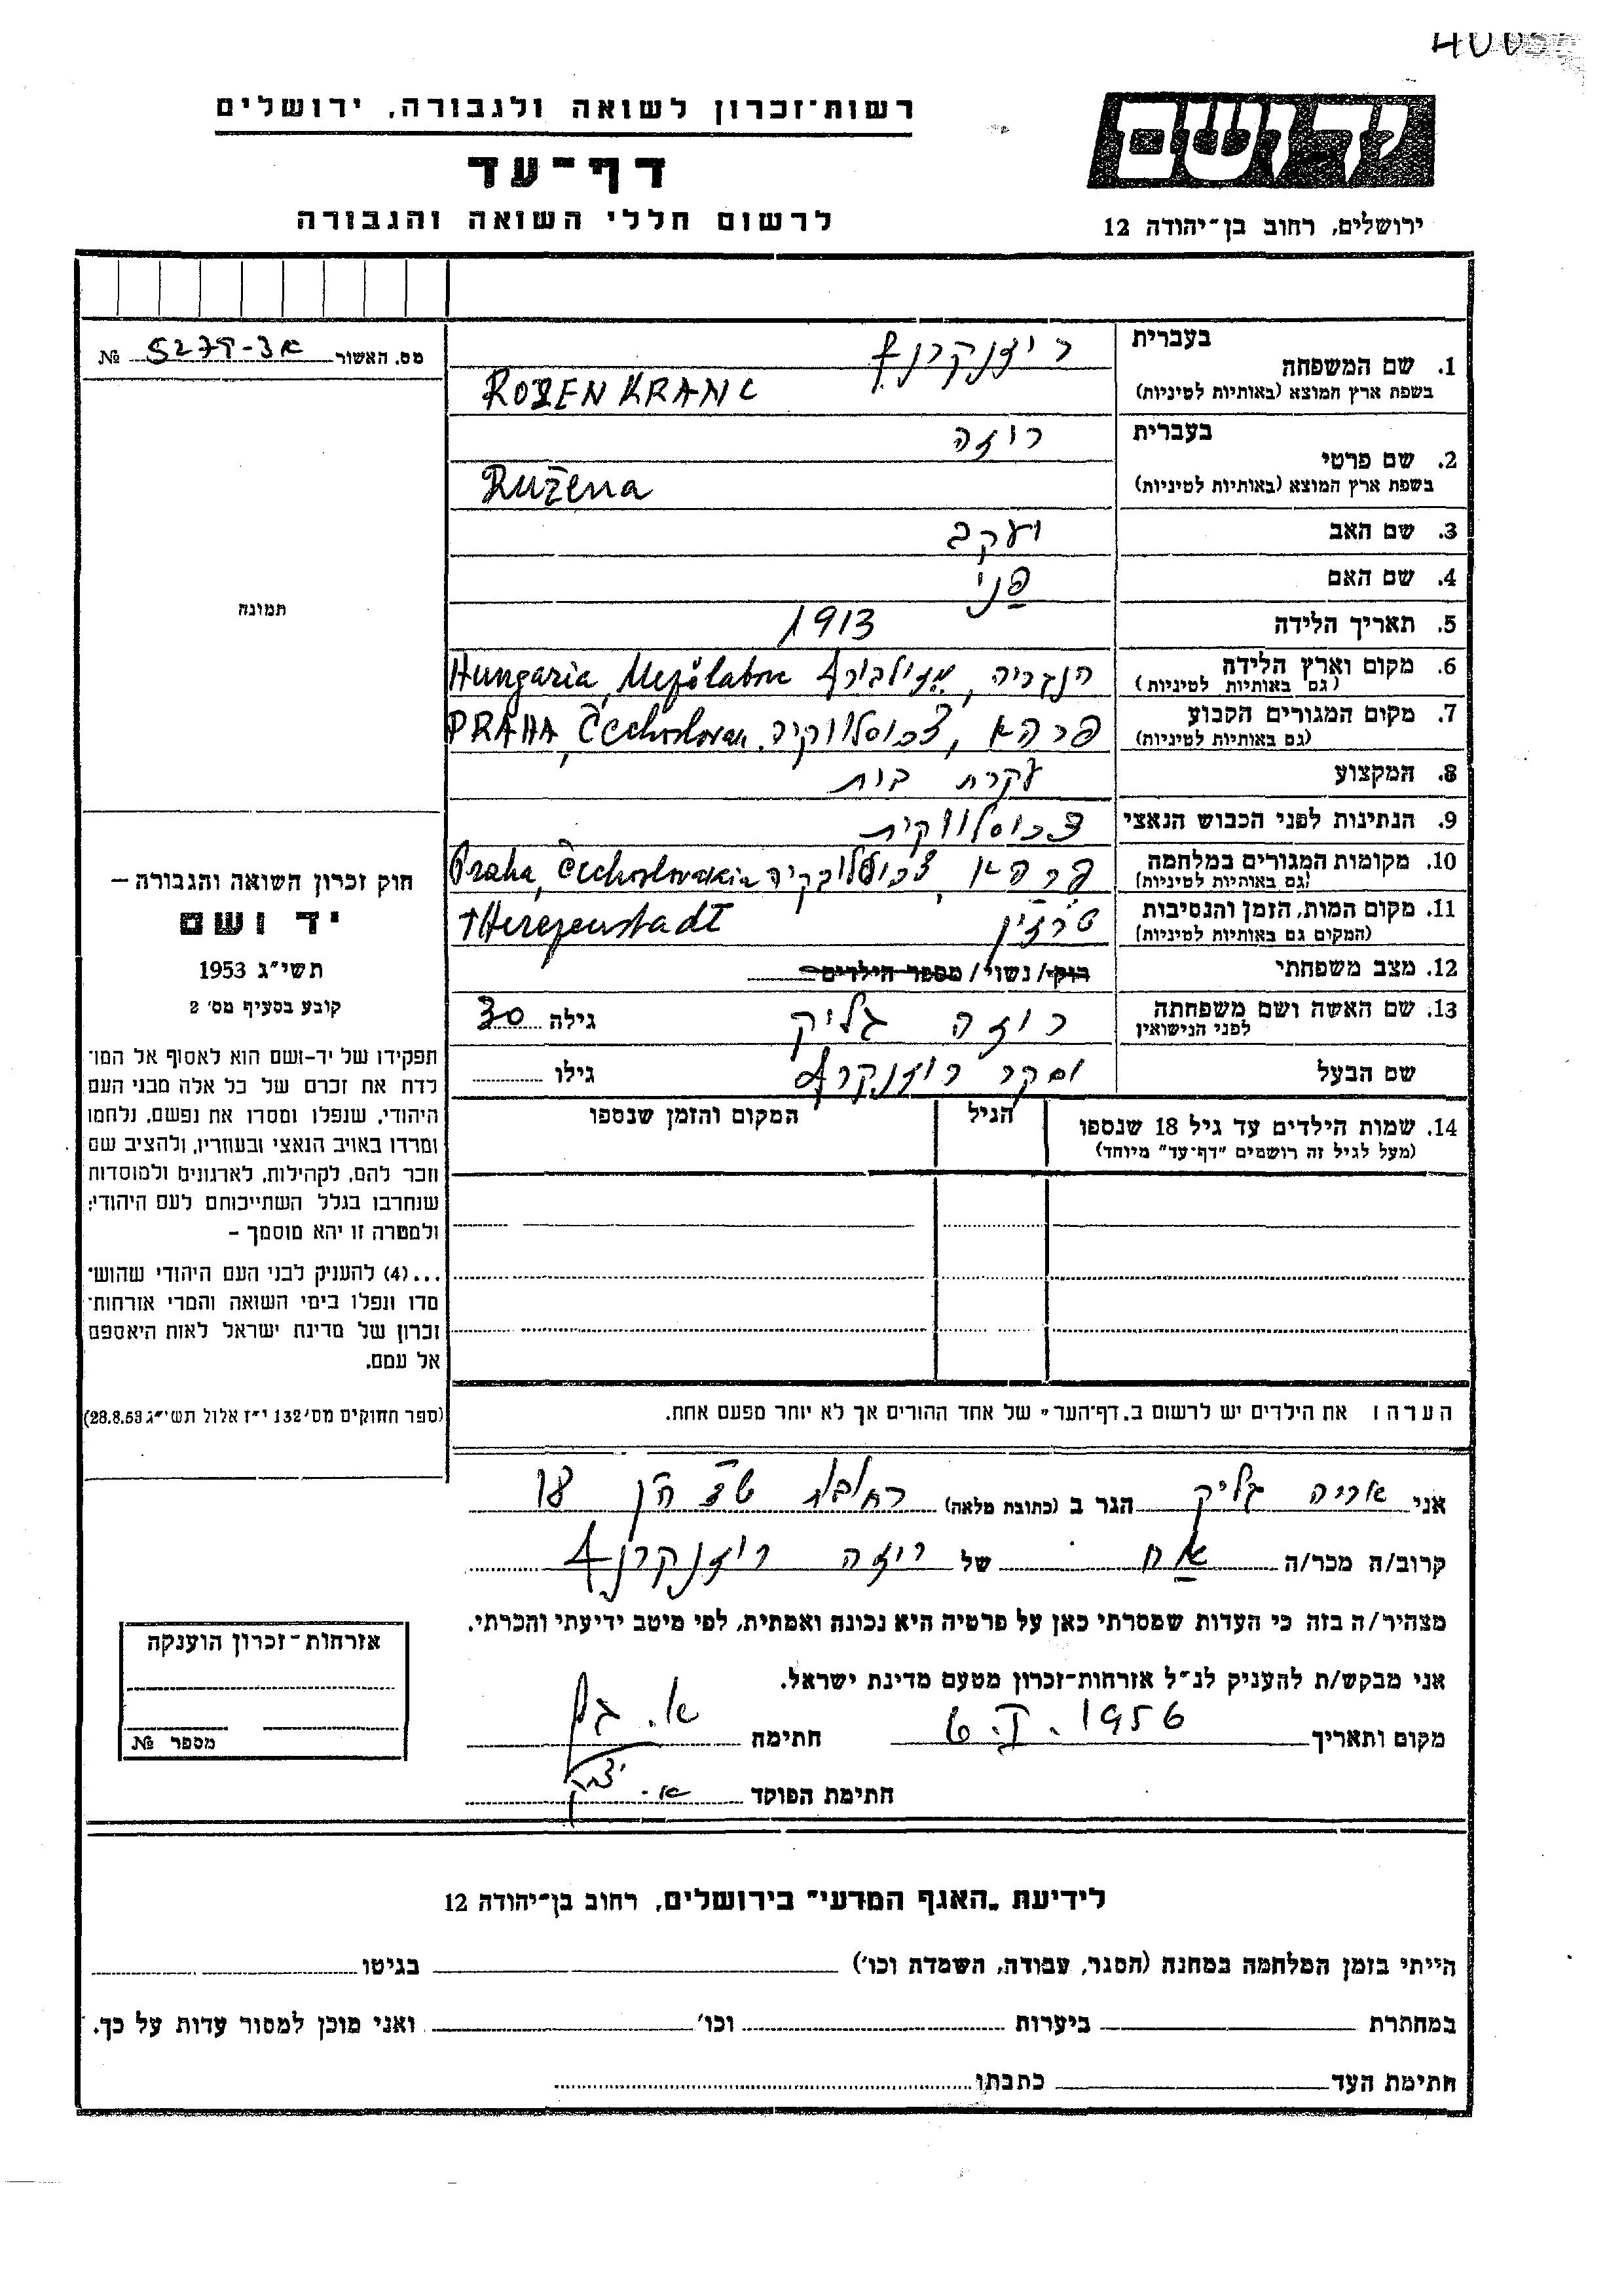 רשות־זכרון לשואה ולגבורה, ירושלים
דף־עד
לרשום חללי השואה והגבורה
יד ושם
ירושלים, רחוב בן־יהודה 12
מס. האשור № 5279-אצ
תמונה
חוק זכרון השואה והגבורה –
יד ושם
תשי״ג 1953
קובע בסעיף מס׳ 2
תפקידו של יד-ושם הוא לאסוף אל המו־
לדת את זכרם של כל אלה מבני העם
היהודי, שנפלו ומסרו את נפשם, נלחמו
ומרדו באויב הנאצי ובעוזריו, ולהציב שם
וזכר להם, לקהילות, לארגונים ולמוסדות
שנחרבו בגלל השתייכותם לעם היהודי;
ולמטרה זו יהא מוסמך –
...(4) להעניק לבני העם היהודי שהוש־
מדו ונפלו בימי השואה והמרי אזרחות־
זכרון של מדינת ישראל לאות היאספם
אל עמם.
(ספר החוקים מס׳ 132 י״ז אלול תשי״ג 28.8.53)
בעברית רוזנקרנץ
1. שם המשפחה
בשפת ארץ המוצא (באותיות לטיניות) ROZENKRANC
בעברית רוזה
2. שם פרטי
בשפת ארץ המוצא (באותיות לטיניות) Ružena
3. שם האב יעקב
4. שם האם פני
5. תאריך הלידה 1913
6. מקום וארץ הלידה הנגריה, Hungaria,
(גם באותיות לטיניות)
7. מקום המגורים הקבוע פרהא, צכוסלווקיה. PRAHA, Čechoslovak
(גם באותיות לטיניות)
8. המקצוע עקרת בית
9. הנתינות לפני הכבוש הנאצי צכוסלווקית
10. מקומות המגורים במלחמה פרהא, צכוסלובקיה Praha, Čechoslovakia
(גם באותיות לטיניות)
11. מקום המות, הזמן והנסיבות טרזין Therezenstadt
(המקום גם באותיות לטיניות)
12. מצב משפחתי רוק/נשוי/מספר הילדים
13. שם האשה ושם משפחתה רוזה גליק גילה 30
לפני הנישואין
שם הבעל אוסקר רוזנקרנץ גילו
14. שמות הילדים עד גיל 18 שנספו הגיל המקום והזמן שנספו
(מעל לגיל זה רושמים "דף־עד" מיוחד)
הערה: את הילדים יש לרשום ב„דף־העד״ של אחד ההורים אך לא יותר מפעם אחת.
אני אריה גליק הגר ב (כתובת מלאה) רחובות 18
קרוב/ה מכר/ה אח של רוזה רוזנקרנץ
מצהיר/ה בזה כי העדות שמסרתי כאן על פרטיה היא נכונה ואמתית, לפי מיטב ידיעתי והכרתי.
אני מבקש/ת להעניק לנ״ל אזרחות־זכרון מטעם מדינת ישראל.
מקום ותאריך 6.I.1956 חתימה
חתימת הפוקד
אזרחות־זכרון הוענקה
מספר №
לידיעת „האגף המדעי״ בירושלים, רחוב בן־יהודה 12
הייתי בזמן המלחמה במחנה (הסגר, עבודה, השמדה וכו׳) בגיטו
במחתרת ביערות וכו׳ ואני מוכן למסור עדות על כך.
חתימת העד כתבתו